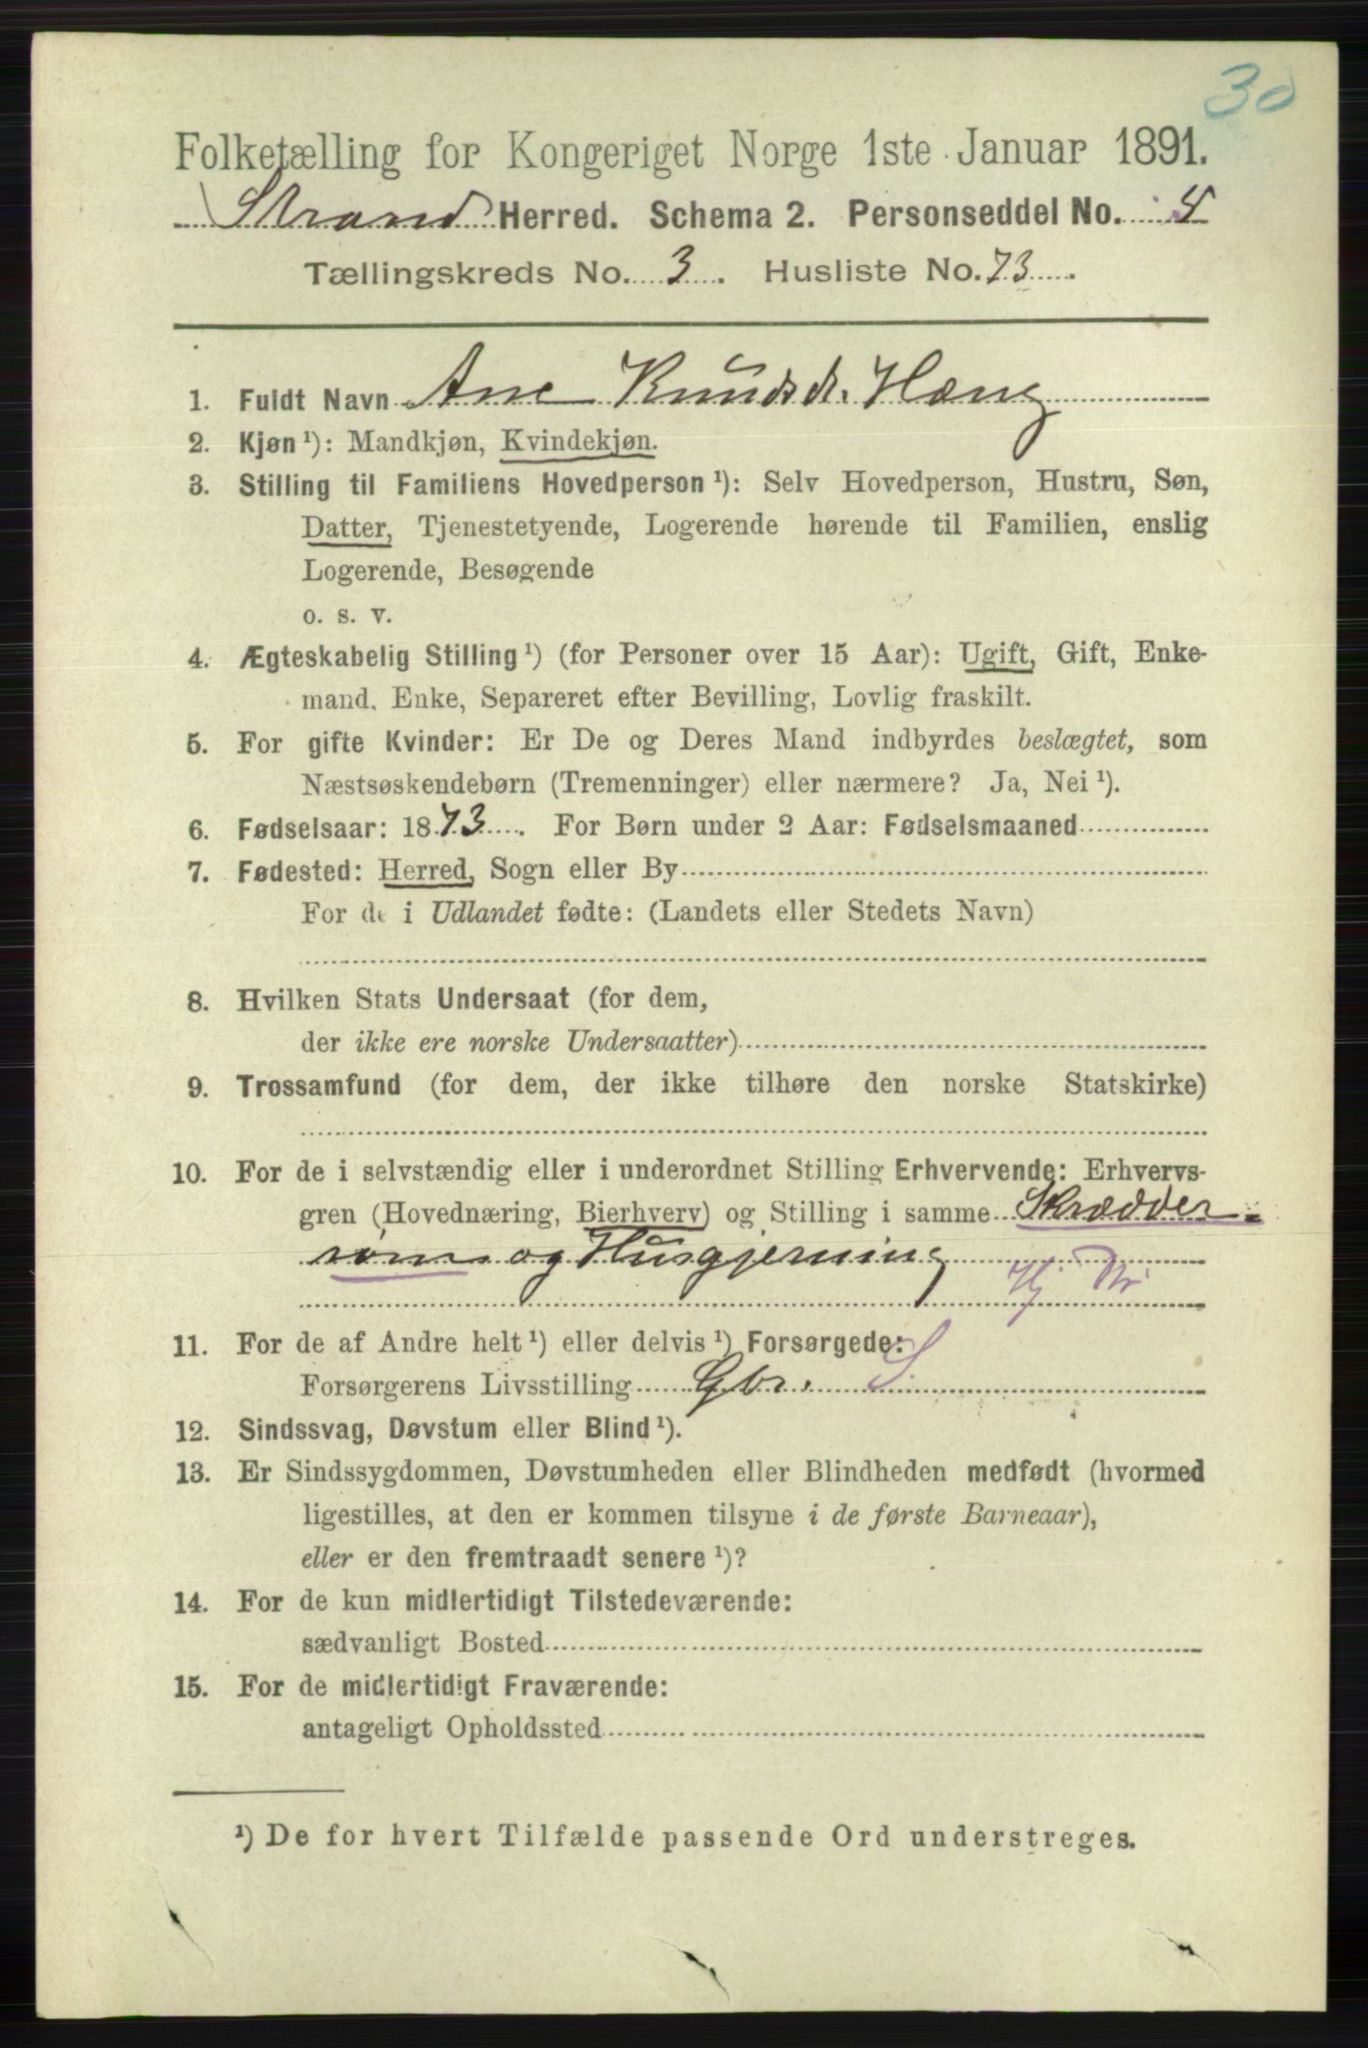 30
Folketælling for Kongeriget Norge 1ste Januar 1891.
Strand Herred. Schema 2. Personseddel No. 4
Tællingskreds No. 3. Husliste No. 73.
1. Fuldt Navn Ane Knudsdr. Hæng
2. Kjøn ¹): Mandkjøn, Kvindekjøn.
3. Stilling til Familiens Hovedperson ¹): Selv Hovedperson, Hustru, Søn,
Datter, Tjenestetyende, Logerende hørende til Familien, enslig
Logerende, Besøgende
o. s. v.
4. Ægteskabelig Stilling ¹) (for Personer over 15 Aar): Ugift, Gift, Enke-
mand, Enke, Separeret efter Bevilling, Lovlig fraskilt.
5. For gifte Kvinder: Er De og Deres Mand indbyrdes beslægtet, som
Næstsøskendebørn (Tremenninger) eller nærmere? Ja, Nei ¹).
6. Fødselsaar: 1873. For Børn under 2 Aar: Fødselsmaaned
7. Fødested: Herred, Sogn eller By
For de i Udlandet fødte: (Landets eller Stedets Navn)
8. Hvilken Stats Undersaat (for dem,
der ikke ere norske Undersaatter)
9. Trossamfund (for dem, der ikke tilhøre den norske Statskirke)
10. For de i selvstændig eller i underordnet Stilling Erhvervende: Erhvervs-
gren (Hovednæring, Bierhverv) og Stilling i samme Skrædder-
søm og Husgjerning
11. For de af Andre helt ¹) eller delvis ¹) Forsørgede:
Forsørgerens Livsstilling Gbr. S.
12. Sindssvag, Døvstum eller Blind ¹).
13. Er Sindssygdommen, Døvstumheden eller Blindheden medfødt (hvormed
ligestilles, at den er kommen tilsyne i de første Barneaar),
eller er den fremtraadt senere ¹)?
14. For de kun midlertidigt Tilstedeværende:
sædvanligt Bosted
15. For de midlertidigt Fraværende:
antageligt Opholdssted
¹) De for hvert Tilfælde passende Ord understreges.